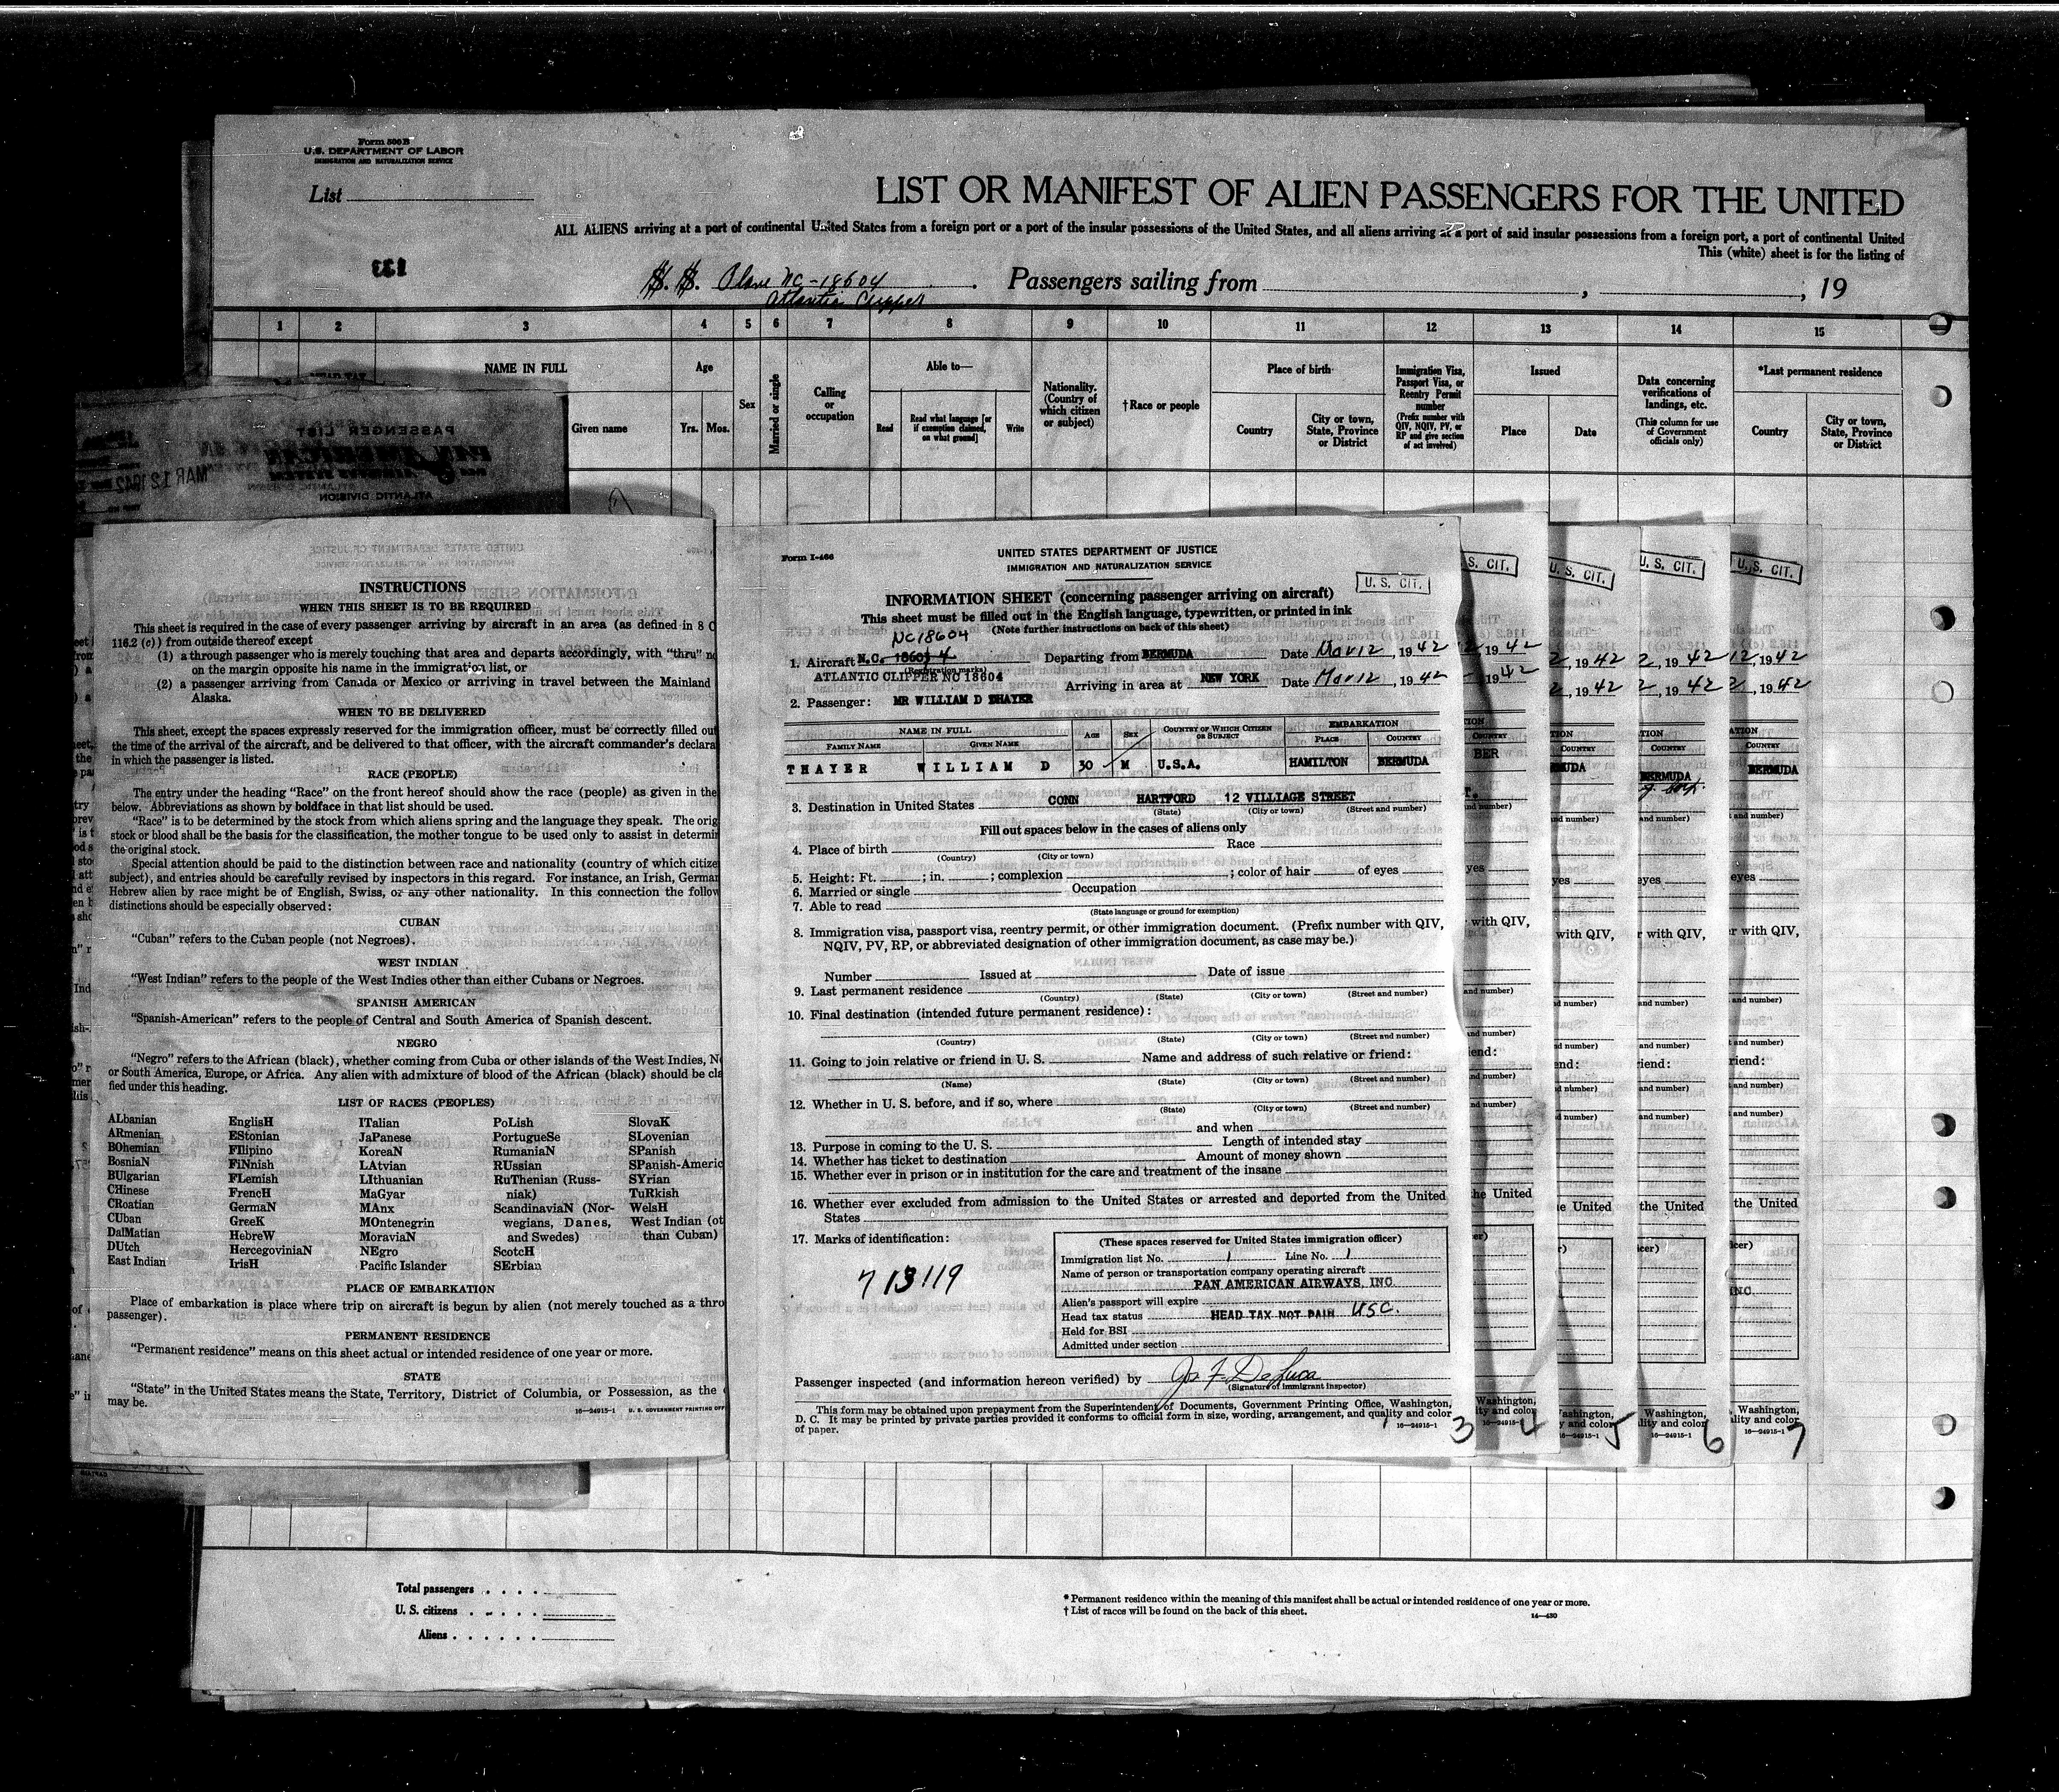 Form 500 B
U.S. DEPARTMENT OF LABOR
IMMIGRATION AND NATURALIZATION SERVICE
List
LIST OR MANIFEST OF ALIEN PASSENGERS FOR THE UNITED
ALL ALIENS arriving at a port of continental United States from a foreign port or a port of the insular possessions of the United States, and all aliens arriving at a port of said insular possessions from a foreign port, a port of continental United
This (white) sheet is for the listing of
133
S. S. Plane NC-18604
Atlantic Clipper
Passengers sailing from , , 19
1 2 3 4 5 6 7 8 9 10 11 12 13 14 15
NAME IN FULL
Given name
Age
Yrs. Mos.
Sex
Married or single
Calling or occupation
Able to—
Read
Read what language [or if exemption claimed, on what ground]
Write
Nationality. (Country of which citizen or subject)
†Race or people
Place of birth
Country
City or town, State, Province or District
Immigration Visa, Passport Visa, or Reentry Permit number
(Prefix number with QIV, NQIV, PV, or RP and give section of act involved)
Issued
Place
Date
Data concerning verifications of landings, etc.
(This column for use of Government officials only)
*Last permanent residence
Country
City or town, State, Province or District
PASSENGER LIST
PAN AMERICAN
ATLANTIC DIVISION
MAR 12 1942
INSTRUCTIONS
WHEN THIS SHEET IS TO BE REQUIRED
This sheet is required in the case of every passenger arriving by aircraft in an area (as defined in 8 C
116.2 (c)) from outside thereof except
(1) a through passenger who is merely touching that area and departs accordingly, with "thru" n
on the margin opposite his name in the immigration list, or
(2) a passenger arriving from Canada or Mexico or arriving in travel between the Mainland
Alaska.
WHEN TO BE DELIVERED
This sheet, except the spaces expressly reserved for the immigration officer, must be correctly filled out
the time of the arrival of the aircraft, and be delivered to that officer, with the aircraft commander's declara
in which the passenger is listed.
RACE (PEOPLE)
The entry under the heading "Race" on the front hereof should show the race (people) as given in the
below. Abbreviations as shown by boldface in that list should be used.
"Race" is to be determined by the stock from which aliens spring and the language they speak. The orig
stock or blood shall be the basis for the classification, the mother tongue to be used only to assist in determin
the original stock.
Special attention should be paid to the distinction between race and nationality (country of which citize
subject), and entries should be carefully revised by inspectors in this regard. For instance, an Irish, German
Hebrew alien by race might be of English, Swiss, or any other nationality. In this connection the follow
distinctions should be especially observed:
CUBAN
"Cuban" refers to the Cuban people (not Negroes).
WEST INDIAN
"West Indian" refers to the people of the West Indies other than either Cubans or Negroes.
SPANISH AMERICAN
"Spanish-American" refers to the people of Central and South America of Spanish descent.
NEGRO
"Negro" refers to the African (black), whether coming from Cuba or other islands of the West Indies, N
or South America, Europe, or Africa. Any alien with admixture of blood of the African (black) should be cla
fied under this heading.
LIST OF RACES (PEOPLES)
ALbanian EnglisH ITalian PoLish SlovaK
ARmenian EStonian JaPanese PortugueSe SLovenian
BOhemian FIlipino KoreaN RumaniaN SPanish
BosniaN FiNnish LAtvian RUssian SPanish-Americ
BUlgarian FLemish LIthuanian RuThenian (Russ- SYrian
CHinese FrencH MaGyar niak) TuRkish
CRoatian GermaN MAnx ScandinaviaN (Nor- WelsH
CUban GreeK MOntenegrin wegians, Danes, West Indian (ot
DalMatian HebreW MoraviaN and Swedes) than Cuban)
DUtch HercegoviniaN NEgro ScotcH
East Indian IrisH Pacific Islander SErbian
PLACE OF EMBARKATION
Place of embarkation is place where trip on aircraft is begun by alien (not merely touched as a thro
passenger).
PERMANENT RESIDENCE
"Permanent residence" means on this sheet actual or intended residence of one year or more.
STATE
"State" in the United States means the State, Territory, District of Columbia, or Possession, as the
may be.
16—24915-1 U. S. GOVERNMENT PRINTING OFF
Form I-466
UNITED STATES DEPARTMENT OF JUSTICE
IMMIGRATION AND NATURALIZATION SERVICE
U. S. CIT.
INFORMATION SHEET (concerning passenger arriving on aircraft)
This sheet must be filled out in the English language, typewritten, or printed in ink
(Note further instructions on back of this sheet)
NC18604
1. Aircraft N.C. 18603 4 Departing from BERMUDA Date Mar 12, 1942
(Registration marks)
ATLANTIC CLIPPER NC 18604 Arriving in area at NEW YORK Date Mar 12, 1942
2. Passenger: MR WILLIAM D THAYER
NAME IN FULL
FAMILY NAME GIVEN NAME AGE SEX COUNTRY OF WHICH CITIZEN OR SUBJECT EMBARKATION PLACE COUNTRY
THAYER WILLIAM D 30 M U.S.A. HAMILTON BERMUDA
3. Destination in United States CONN HARTFORD 12 VILLIAGE STREET
(State) (City or town) (Street and number)
Fill out spaces below in the cases of aliens only
4. Place of birth Race
(Country) (City or town)
5. Height: Ft. ; in. ; complexion ; color of hair of eyes
6. Married or single Occupation
7. Able to read
(State language or ground for exemption)
8. Immigration visa, passport visa, reentry permit, or other immigration document. (Prefix number with QIV,
NQIV, PV, RP, or abbreviated designation of other immigration document, as case may be.)
Number Issued at Date of issue
9. Last permanent residence
(Country) (State) (City or town) (Street and number)
10. Final destination (intended future permanent residence):
(Country) (State) (City or town) (Street and number)
11. Going to join relative or friend in U. S. Name and address of such relative or friend:
(Name) (State) (City or town) (Street and number)
12. Whether in U. S. before, and if so, where
(State) (City or town) (Street and number)
and when
13. Purpose in coming to the U. S. Length of intended stay
14. Whether has ticket to destination Amount of money shown
15. Whether ever in prison or in institution for the care and treatment of the insane
16. Whether ever excluded from admission to the United States or arrested and deported from the United
States
17. Marks of identification:
713119
(These spaces reserved for United States immigration officer)
Immigration list No. 1 Line No. 1
Name of person or transportation company operating aircraft
PAN AMERICAN AIRWAYS, INC
Alien's passport will expire
Head tax status HEAD TAX NOT PAID USC.
Held for BSI
Admitted under section
Passenger inspected (and information hereon verified) by Jos F. DeLuca
(Signature of immigrant inspector)
This form may be obtained upon prepayment from the Superintendent of Documents, Government Printing Office, Washington,
D. C. It may be printed by private parties provided it conforms to official form in size, wording, arrangement, and quality and color
of paper.
16—24915-1
3 4 5 6 7
Total passengers
U. S. citizens
Aliens
* Permanent residence within the meaning of this manifest shall be actual or intended residence of one year or more.
† List of races will be found on the back of this sheet.
14—430